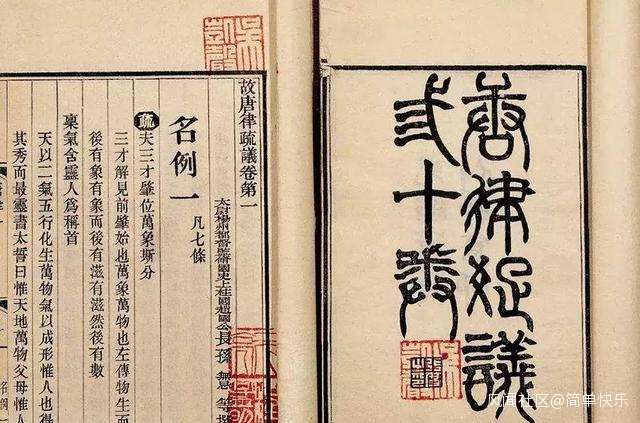 唐律疏議
十卷
故唐律疏議卷第一
太尉揚州都督監修國史上柱國趙國公長孫無忌等撰
名例一 凡七條
疏夫三才肇位萬象斯分
三才解見前肇始也萬象萬物也左傳物生而
後有象有象而後有滋有滋然後有數
稟氣含靈人爲稱首
天以二氣五行化生萬物氣以成形惟人也得
其秀而最靈書太誓曰惟天地萬物父母惟人
名例一
风闻社区@简单快乐